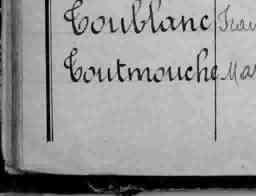 Toublanc
Toutmouche Mar